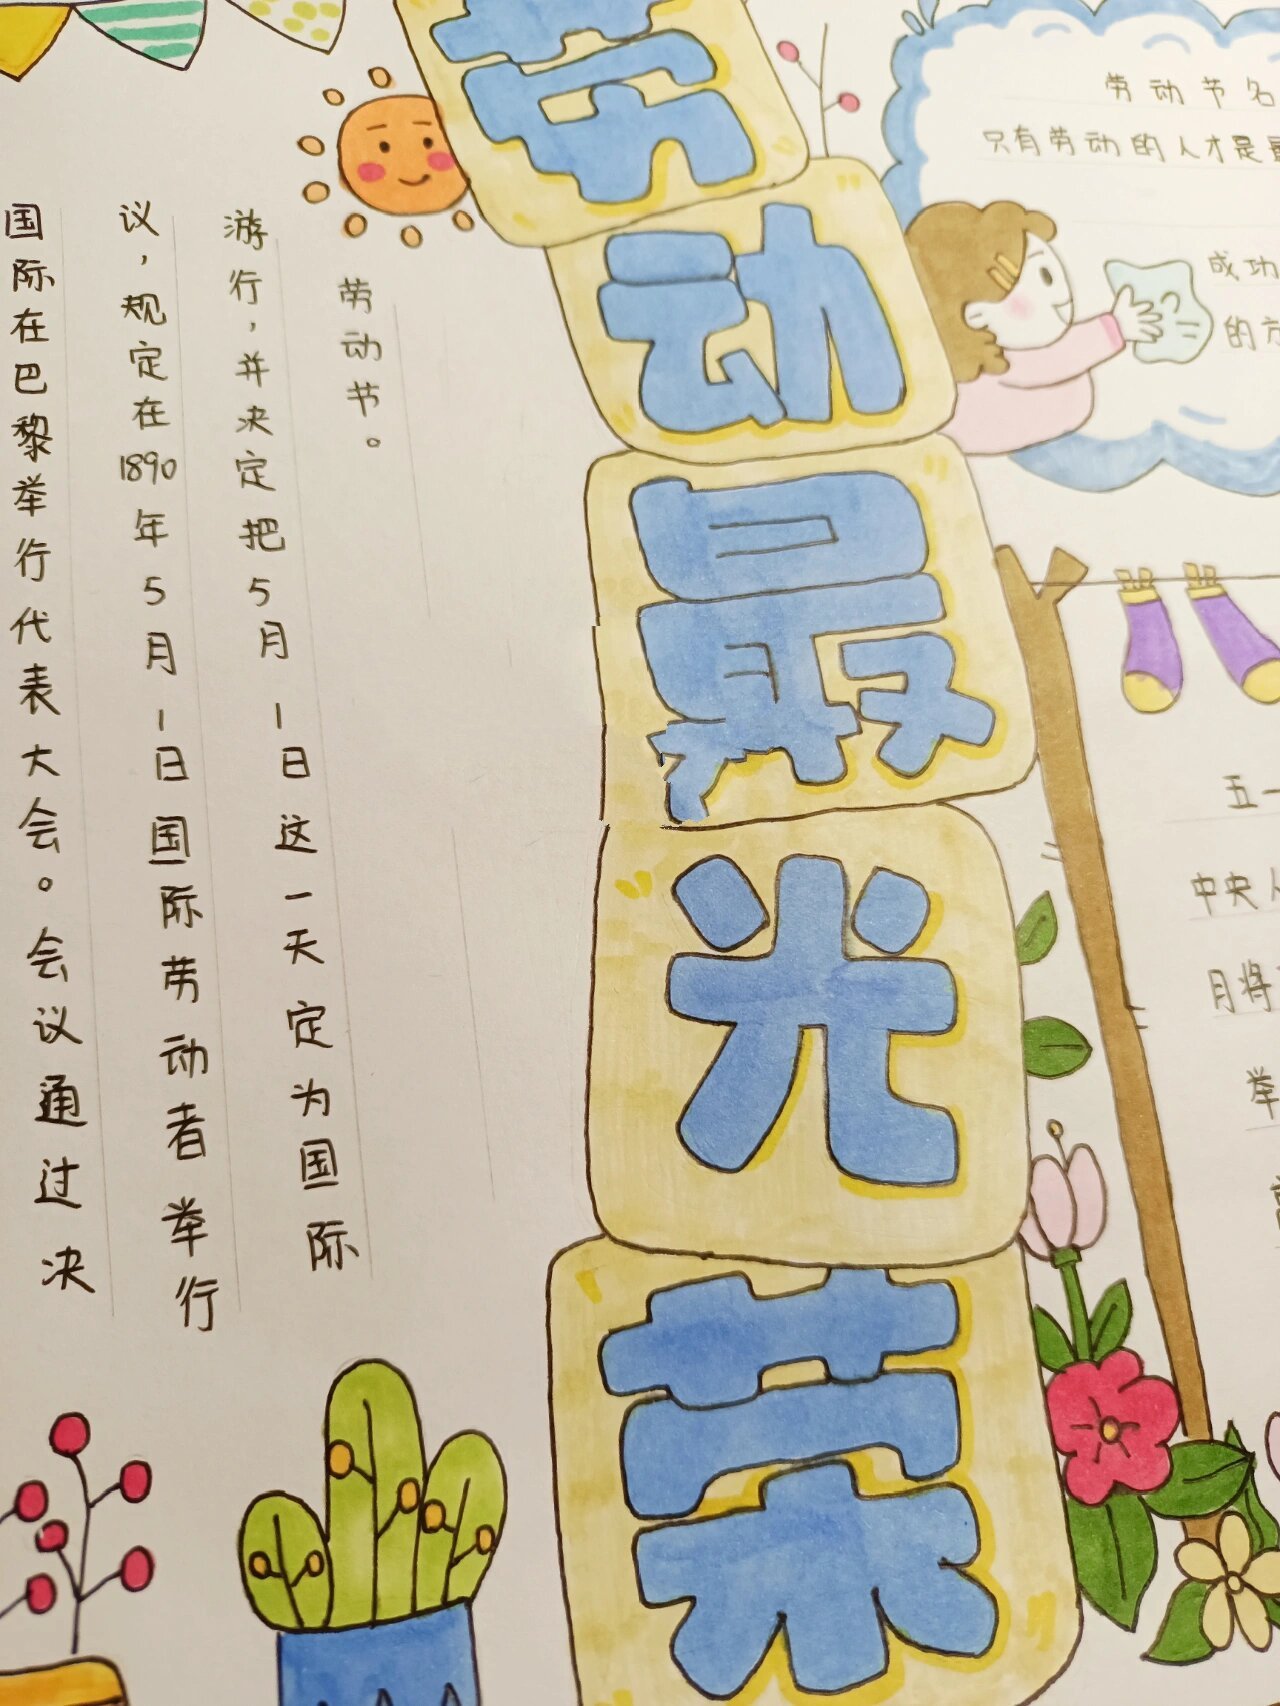 国际在巴黎举行代表大会。会议通过决
议，规定在1890年5月1日国际劳动者举行
游行，并决定把5月1日这一天定为国际
劳动节。
劳动最光荣
劳动节名
只有劳动的人才是最
成功
的方
五一
中央人
月将
举